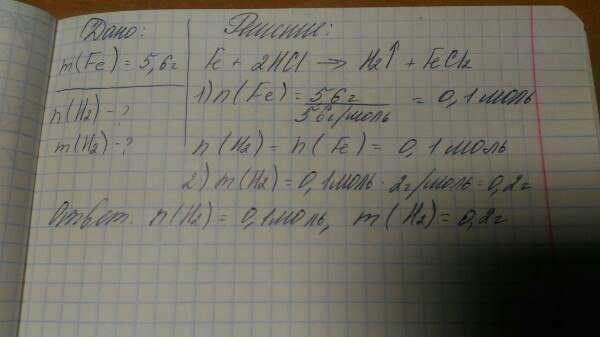 Дано:
m(Fe) = 5,6г
n(H₂) - ?
m(H₂) - ?
Решение:
Fe + 2HCl → H₂↑ + FeCl₂
1) n(Fe) = 5,6г / 56г/моль = 0,1моль
n(H₂) = n(Fe) = 0,1моль
2) m(H₂) = 0,1моль · 2г/моль = 0,2г
Ответ: n(H₂) = 0,1моль, m(H₂) = 0,2г